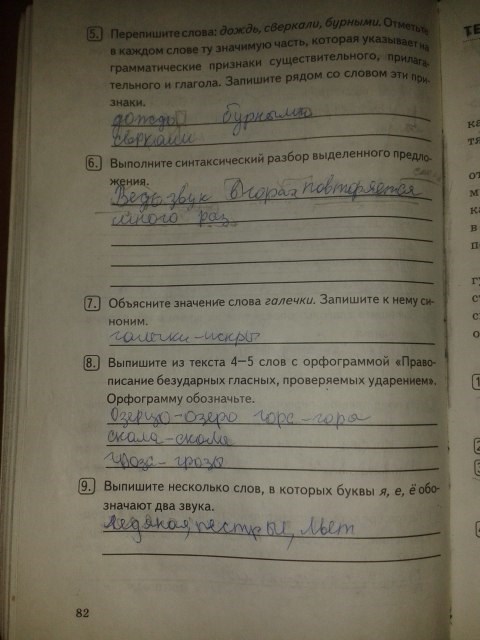 5. Перепишите слова: дождь, сверкали, бурными. Отметьте
в каждом слове ту значимую часть, которая указывает на
грамматические признаки существительного, прилага-
тельного и глагола. Запишите рядом со словом эти при-
знаки.
дождь бурными
сверкали
6. Выполните синтаксический разбор выделенного предло-
жения.
Ведь звук в горах повторяется
много раз
7. Объясните значение слова галечки. Запишите к нему си-
ноним.
галечки - искры
8. Выпишите из текста 4—5 слов с орфограммой «Право-
писание безударных гласных, проверяемых ударением».
Орфограмму обозначьте.
Озерцо - озеро гора - горы
скала - скалы
гроза - грозы
9. Выпишите несколько слов, в которых буквы я, е, ё обо-
значают два звука.
Ледяная, пестрые, льёт
82